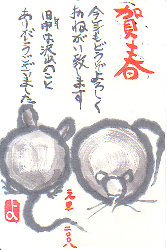 賀春
今年もどうぞよろしく
お願い致します
旧年中は沢山のこと
ありがとうございました
元旦
二〇〇八